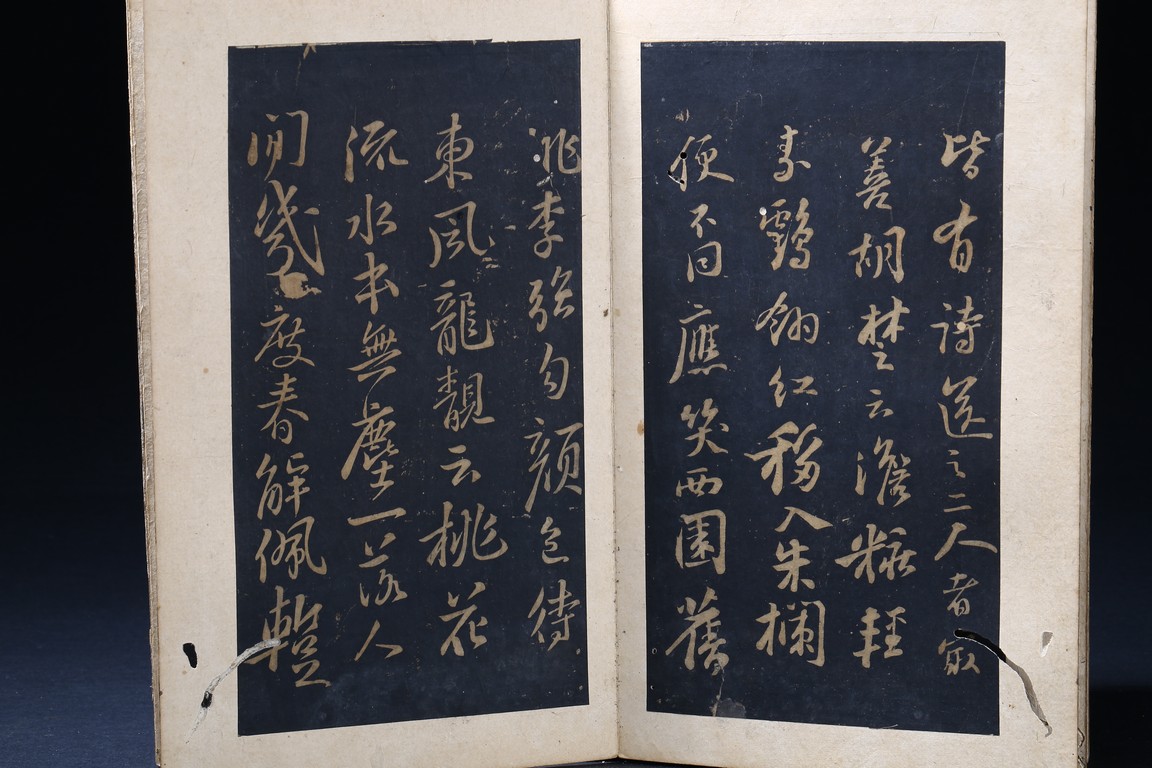 皆有詩送之二人者㝡
善胡楚云澹粧輕
素鶴翎紅移入朱欄
便不同應笑西園舊
桃李強勻顏色待
東風龍靚云桃花
流水本無塵一落人
間幾度春解佩暫